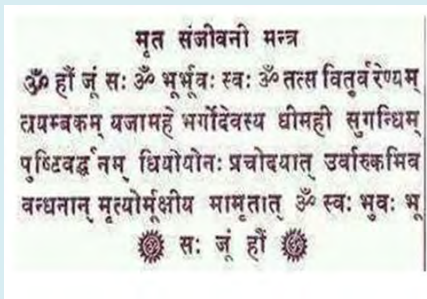 मृत संजीवनी मन्त्र
ॐ हौं जूं सः ॐ भूर्भूवः स्वः ॐ तत्स वितुर्वरेण्यम्
त्रायम्बकम् यजामहे भर्गोदेवस्य धीमही सुगन्धिम्
पुष्टिवर्द्धनम् धियोयोनः प्रचोदयात् उर्वारुकमिव
वन्धनान् मृत्योर्मूक्षीय मामृतात् ॐ स्वः भुवः भू
ॐ सः जूं हौं ॐ